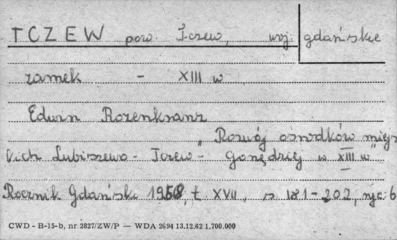 TCZEW pow. Tczew, woj. gdańskie
zamek - XIII w
Edwin Rozenkranz
"Rozwój osrodków miejs
kich Lubiszewo - Tczew - Gorzędziej w XIII w"
Rocznik Gdański 1958, t XVII, s 181-202, ryc. 6
CWD - B-15-b, nr 2827/ZW/P — WDA 2694 13.12.62 1.700.000